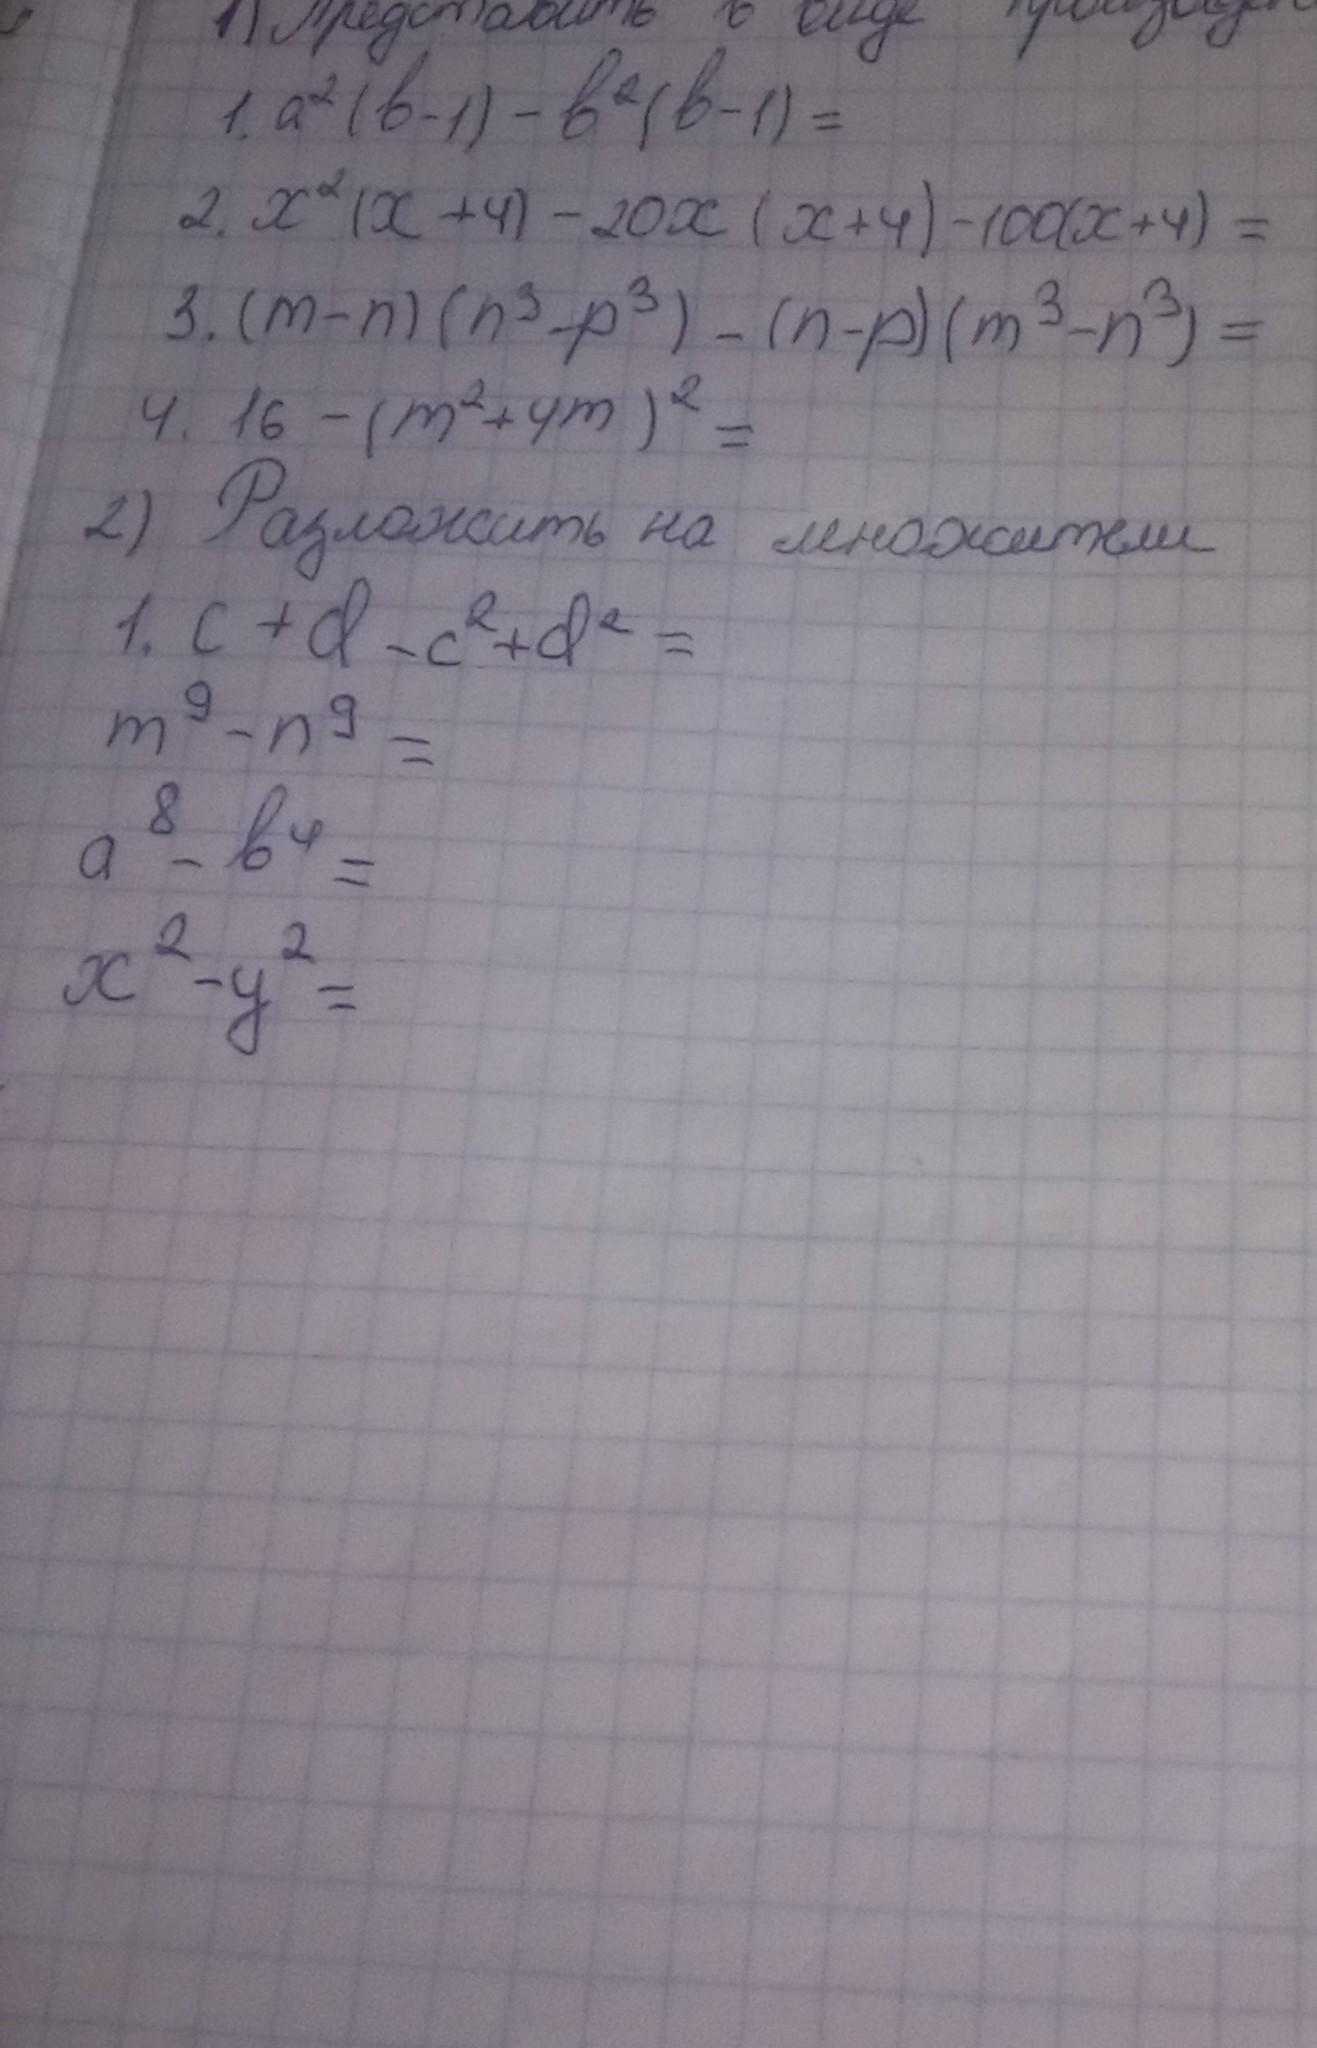 1) Представить в виде
1. a²(b-1) - b²(b-1) =
2. x²(x+4) - 20x(x+4) - 100(x+4) =
3. (m-n)(n³-p³) - (n-p)(m³-n³) =
4. 16 - (m²+4m)² =
2) Разложить на множители
1. c + d - c² + d² =
m⁹ - n⁹ =
a⁸ - b⁴ =
x² - y² =